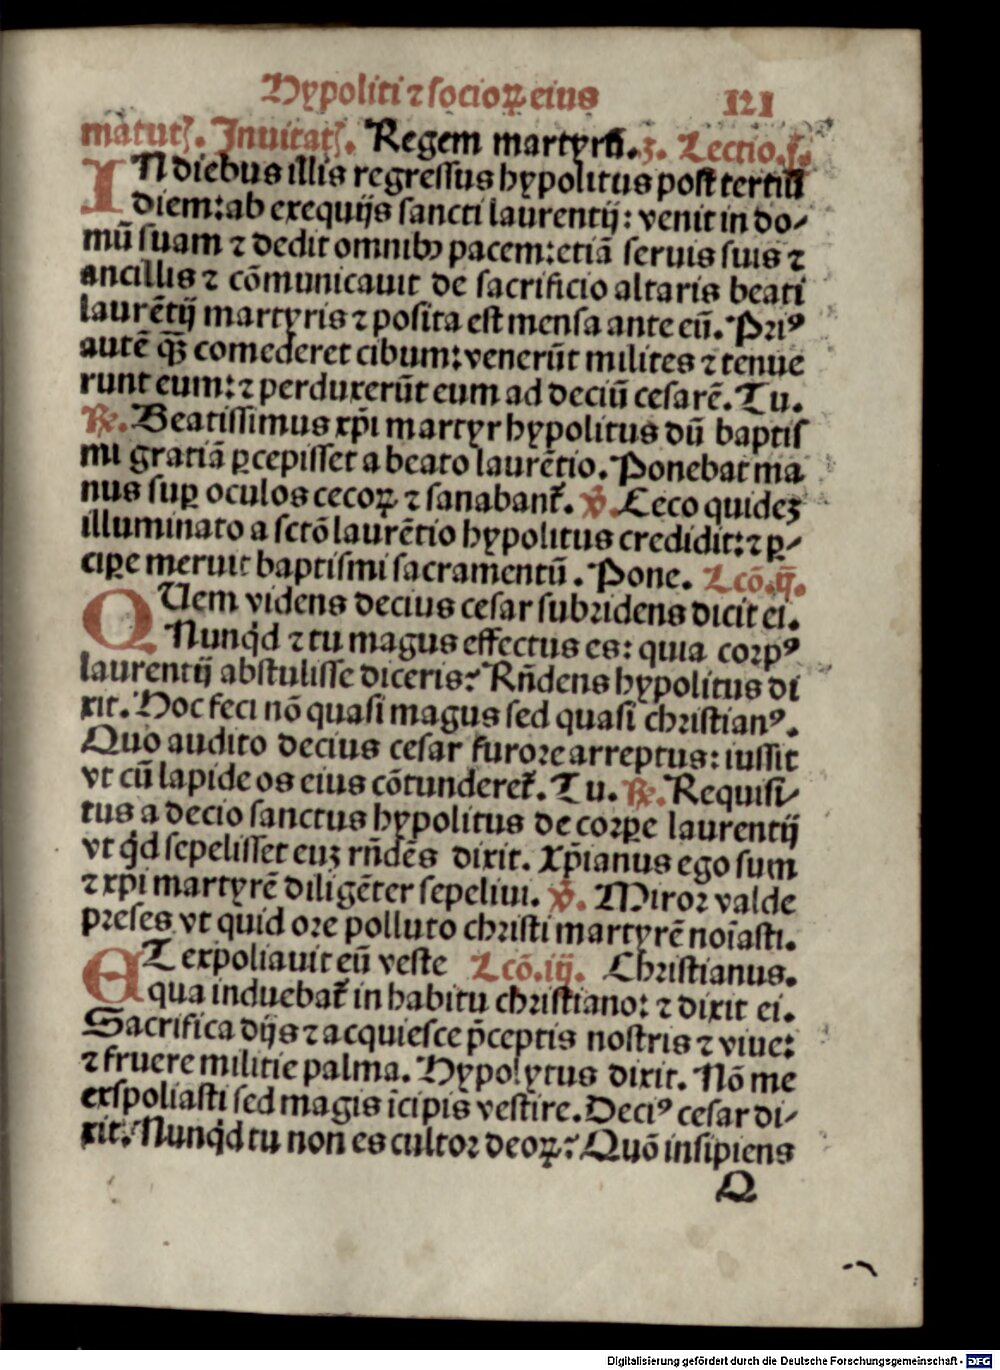 Hypoliti ⁊ socioꝝ eius 121
matutꝭ. Inuitatꝭ. Regem martyrū. 3. Lectio. j.
IN diebus illis regressus hypolitus post tertiū
diem: ab exequijs sancti laurentij: venit in do-
mū suam ⁊ dedit omnibꝫ pacem: etiā seruis suis ⁊
ancillis ⁊ cōmunicauit de sacrificio altaris beati
laurētij martyris ⁊ posita est mensa ante eū. Priꝰ
autē qꝫ̄ comederet cibum: venerūt milites ⁊ tenue
runt eum: ⁊ perduxerūt eum ad deciū cesarē. Tu.
℟. Beatissimus xp̄i martyr hypolitus dū baptis
mi gratiā ꝑcepisset a beato laurētio. Ponebat ma
nus suꝑ oculos cecoꝝ ⁊ sanabant᷑. ℣. Ceco quideꝫ
illuminato a sctō laurētio hypolitus credidit: ⁊ ꝑ-
cipe meruit baptismi sacramentū. Pone. Lcō. ij.
QUem videns decius cesar subridens dicit ei.
Nunqd̓ ⁊ tu magus effectus es: quia corpꝰ
laurentij abstulisse diceris? Rn̄dens hypolitus di
xit. Hoc feci nō quasi magus sed quasi christianꝰ.
Quo audito decius cesar furore arreptus: iussit
vt cū lapide os eius cōtunderet᷑. Tu. ℟. Requisi-
tus a decio sanctus hypolitus de corpe laurentij
vt qd̓ sepelisset euꝫ rn̄dēs dixit. Xp̄ianus ego sum
⁊ xp̄i martyrē diligēter sepeliui. ℣. Miror valde
preses vt quid ore polluto christi martyrē noīasti.
ET expoliauit eū veste Lcō. iij. Christianus.
qua induebat᷑ in habitu christiano: ⁊ dixit ei.
Sacrifica dijs ⁊ acquiesce p̄ceptis nostris ⁊ viue:
⁊ fruere militie palma. Hypolytus dixit. Nō me
exspoliasti sed magis īcipis vestire. Deciꝰ cesar di-
xit. Nunqd̓ tu non es cultor deoꝝ? Quō insipiens
Q
Digitalisierung gefördert durch die Deutsche Forschungsgemeinschaft - DFG